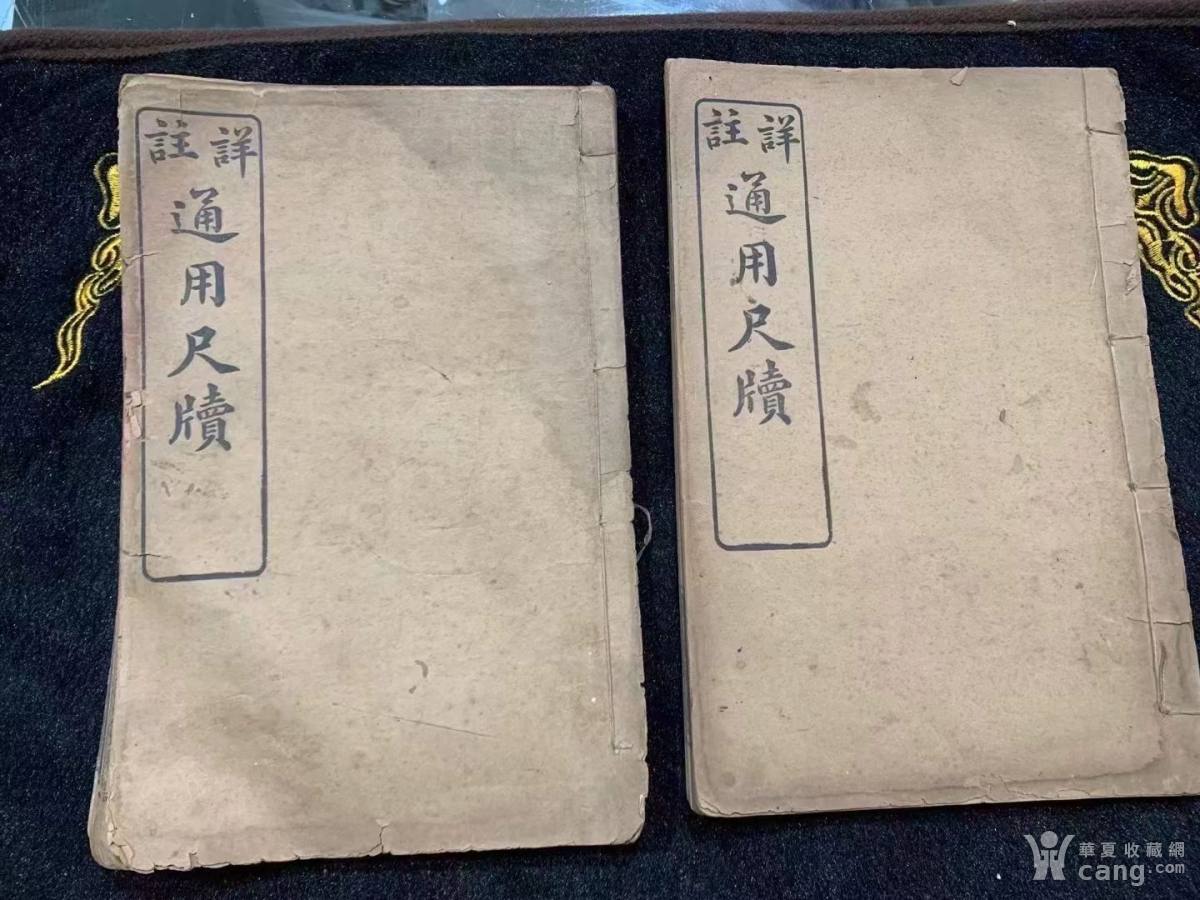 詳註
通用尺牘
詳註
通用尺牘
華夏收藏網
cang.com